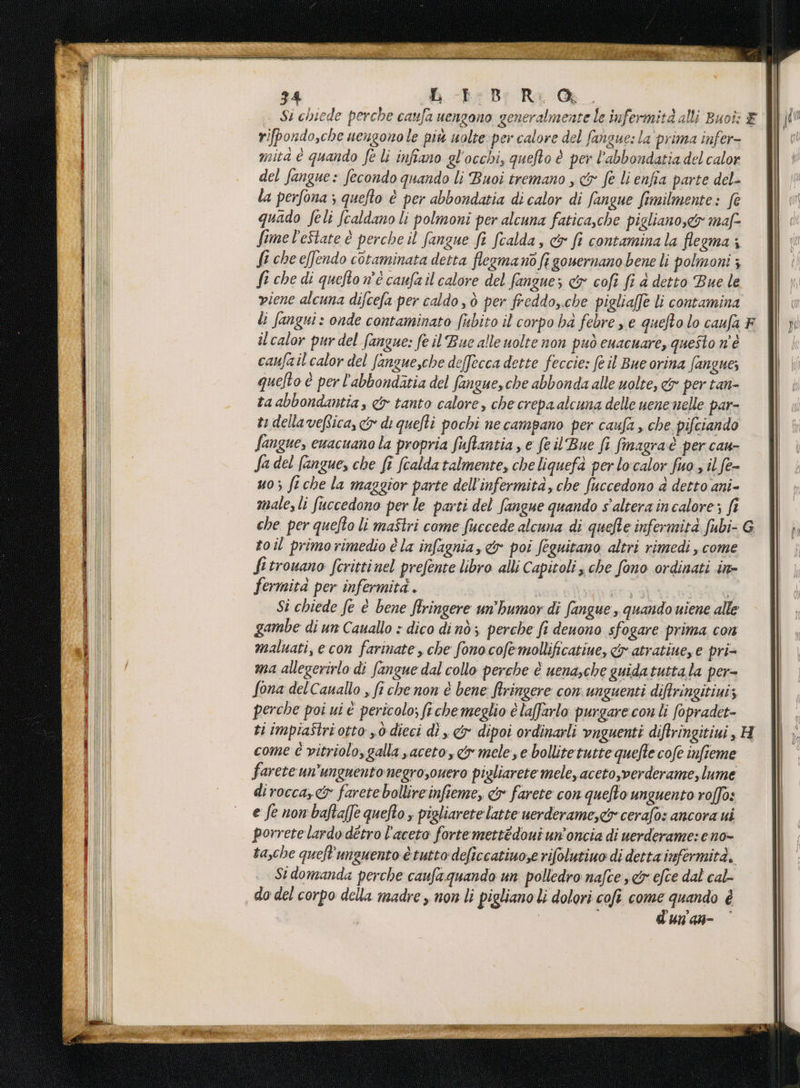 34 L I B R O
Si chiede perche causa uengono generalmente le infermità alli Buoi: E
rispondo,che uengono le più uolte per calore del sangue: la prima infer-
mità è quando se li infiano gl'occhi, questo è per l'abbondatia del calor
del sangue: secondo quando li Buoi tremano, & se li enfia parte del-
la persona; questo è per abbondatia di calor di sangue similmente: se
quádo seli scaldano li polmoni per alcuna fatica,che pigliano,& maf-
sime l'estate è perche il sangue si scalda, & si contamina la flegma;
si che essendo cōtaminata detta flegma nō si gouernano bene li polmoni;
si che di questo n'è causa il calore del sangue; & cosi si à detto Bue le
viene alcuna discesa per caldo, ò per freddo,che pigliasse li contamina
li sangui: onde contaminato subito il corpo hà febre, e questo lo causa F
il calor pur del sangue: se il Bue alle uolte non può euacuare, questo n'è
causa il calor del sangue,che dessecca dette feccie: se il Bue orina sangue;
questo è per l'abbondātia del sangue, che abbonda alle uolte, & per tan-
ta abbondantia, & tanto calore, che crepa alcuna delle uene nelle par-
ti della vessica, & di questi pochi ne campano per causa, che pisciando
sangue, euacuano la propria sustantia, e se il Bue si smagra è per cau-
sa del sangue, che si scalda talmente, che liquefà per lo calor suo, il se-
uo; si che la maggior parte dell'infermità, che succedono à detto ani-
male, li succedono per le parti del sangue quando s'altera in calore; si
che per questo li mastri come succede alcuna di queste infermità subi- G
to il primo rimedio è la insagnia, & poi seguitano altri rimedi, come
si trouano scritti nel presente libro alli Capitoli, che sono ordinati in-
fermità per infermità.
Si chiede se è bene stringere un'humor di sangue, quando uiene alle
gambe di un Cauallo: dico di nò; perche si deuono sfogare prima con
maluati, e con farinate, che sono cose mollificatiue, & atratiue, e pri-
ma allegerirlo di sangue dal collo perche è uena,che guida tutta la per-
sona del Cauallo, si che non è bene stringere con unguenti distringitiui;
perche poi ui è pericolo; si che meglio è lassarlo purgare con li sopradet-
ti impiastri otto, ò dieci dì, & dipoi ordinarli vnguenti distringitiui, H
come è vitriolo, galla, aceto, & mele, e bollite tutte queste cose insieme
farete un'unguento negro,ouero pigliarete mele, aceto,verderame, lume
di rocca, & farete bollire insieme, & farete con questo unguento rosso:
e se non bastasse questo, pigliarete latte uerderame,& cerase: ancora ui
porrete lardo détro l'aceto forte mettédoui un'oncia di uerderame: e no-
ta,che quest'unguento è tutto desiccatiuo,e risolutiuo di detta infermità.
Si domanda perche causa quando un polledro nasce, & esce dal cal-
do del corpo della madre, non li pigliano li dolori cosi come quando è
d'un'an-